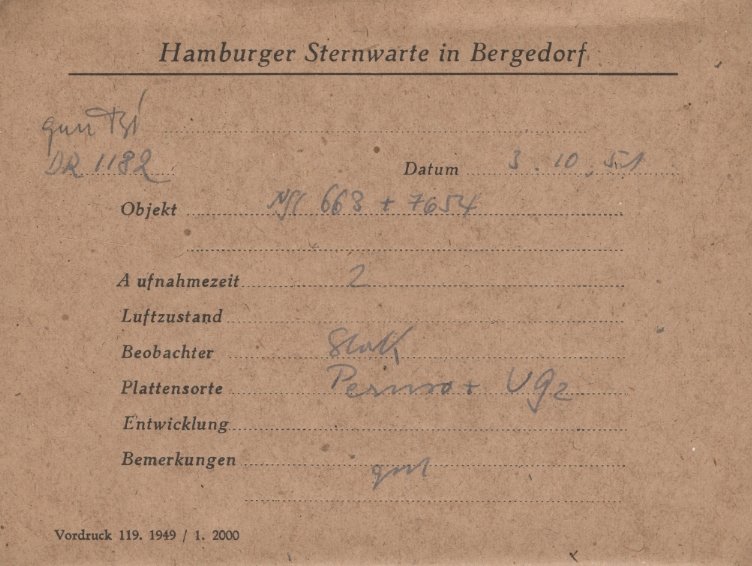 Hamburger Sternwarte in Bergedorf
DR 1182
Datum 3. 10. 51
Objekt NGC 663 + 7654
Aufnahmezeit 2
Luftzustand
Beobachter
Plattensorte UG2
Entwicklung
Bemerkungen gut
Vordruck 119. 1949 / 1. 2000